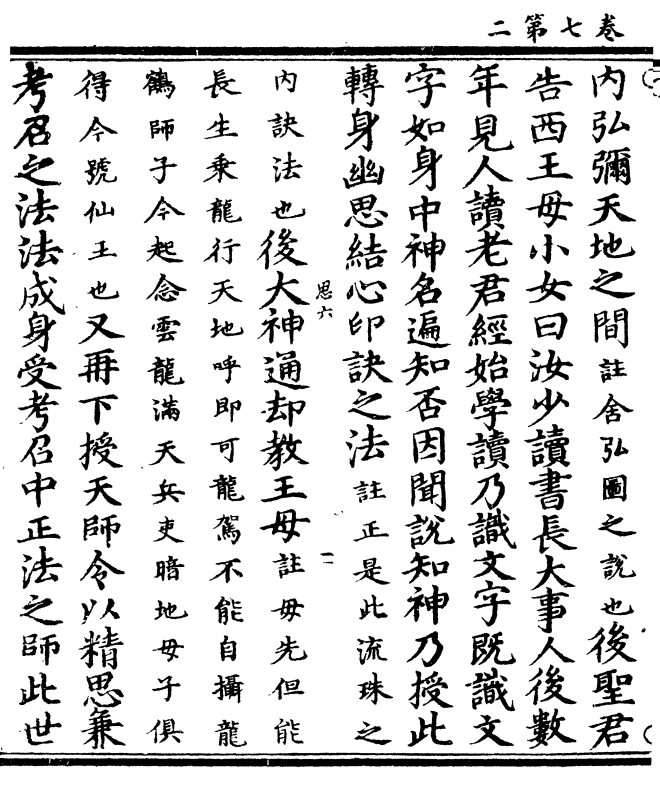 卷七第二
内弘彌天地之間註舍弘圖之說也後聖君
告西王母小女曰汝少讀書長大事人後數
年見人讀老君經始學讀乃識文字既識文
字如身中神名遍知否因聞說知神乃授此
轉身幽思結心印訣之法註正是此流珠之
内訣法也後大神通却教王母註毋先但能
思六
二
長生乘龍行天地呼即可龍駕不能自攝龍
鶴師子今起念雲龍滿天兵吏暗地母子俱
得今號仙王也又再下授天師令以精思兼
考召之法法成身受考召中正法之師此世